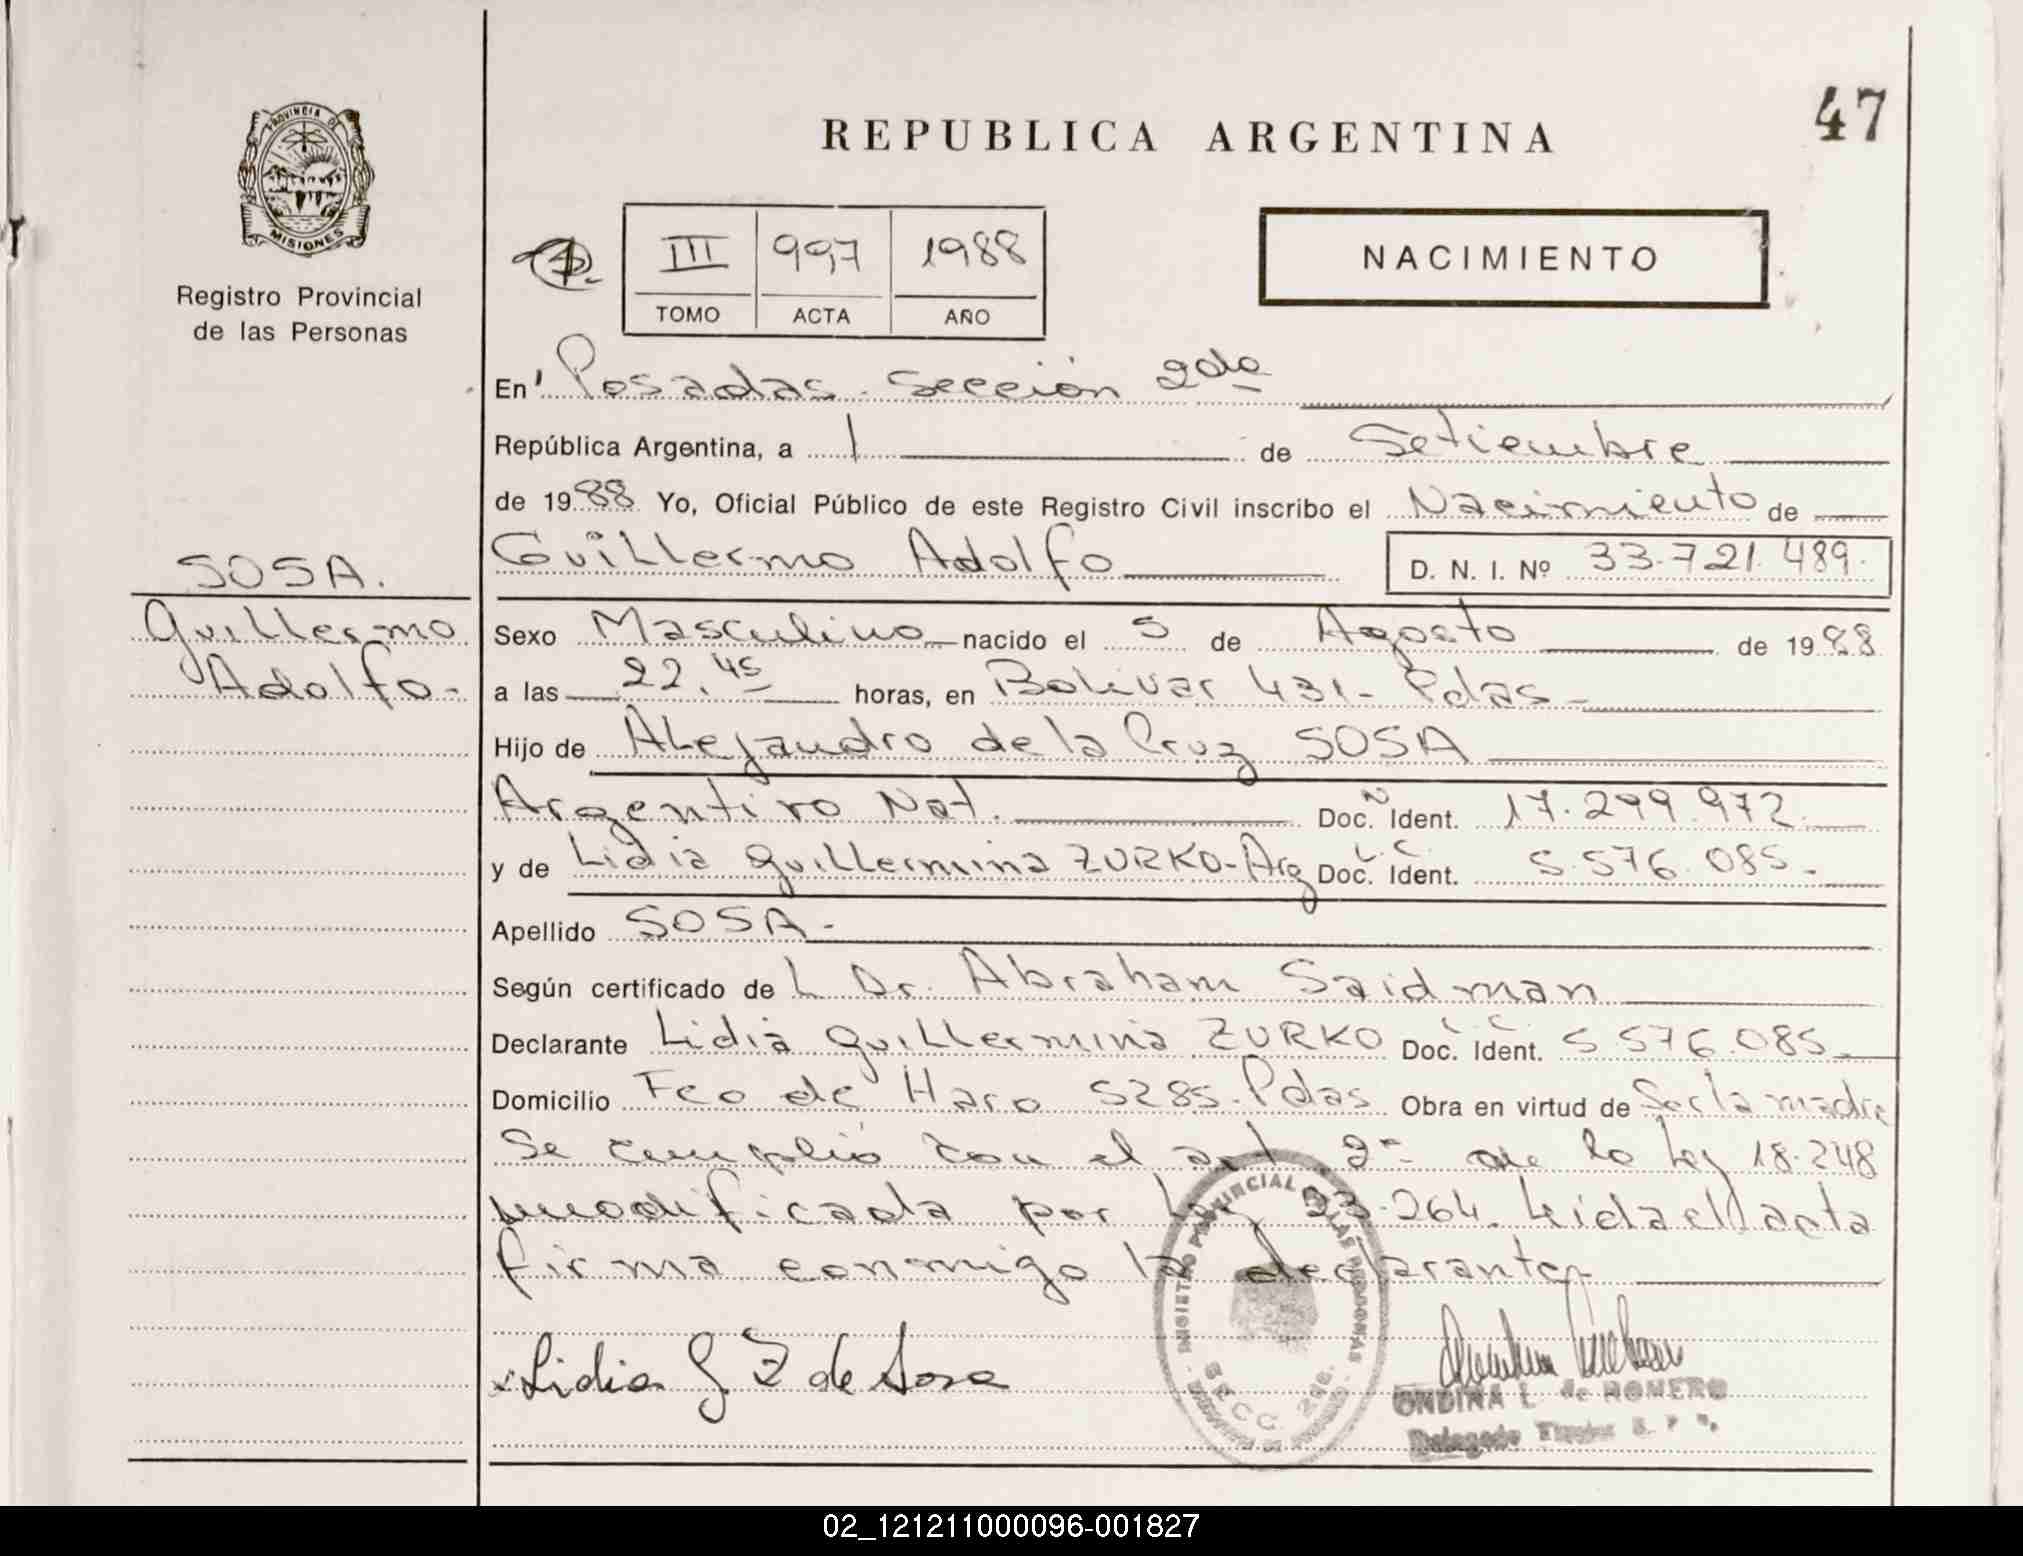 47
REPUBLICA ARGENTINA
PROVINCIA DE
MISIONES
Registro Provincial
de las Personas
III 997 1988
TOMO ACTA AÑO
NACIMIENTO
En Posadas. Sección 2da
República Argentina, a 1 de Setiembre
de 1988 Yo, Oficial Público de este Registro Civil inscribo el Nacimiento de
Guillermo Adolfo D. N. I. Nº 33.721.489.
SOSA.
Guillermo
Adolfo.-
Sexo Masculino nacido el 5 de Agosto de 1988
a las 22.45 horas, en Bolivar 431- Pdas-
Hijo de Alejandro de la Cruz SOSA
Argentino Nat. Doc. N Ident. 17.299.972.
y de Lidia Guillermina ZURKO-Arg Doc. L.C. Ident. 5.576.085.-
Apellido SOSA.-
Según certificado de L Dr. Abraham Saidman
Declarante Lidia Guillermina ZURKO Doc. L.C. Ident. 5.576.085.-
Domicilio Fco de Haro 5285-Pdas Obra en virtud de Ser la madre
Se cumplió con el art 2º de la Ley 18.248
modificada por Ley 23.264. Leida el acta
firma conmigo la declarante
Lidia G Z de Sosa
REGISTRO PROVINCIAL DE LAS PERSONAS
SECC. 2da.
ONDINA L. de ROMERO
Delegado
02_121211000096-001827